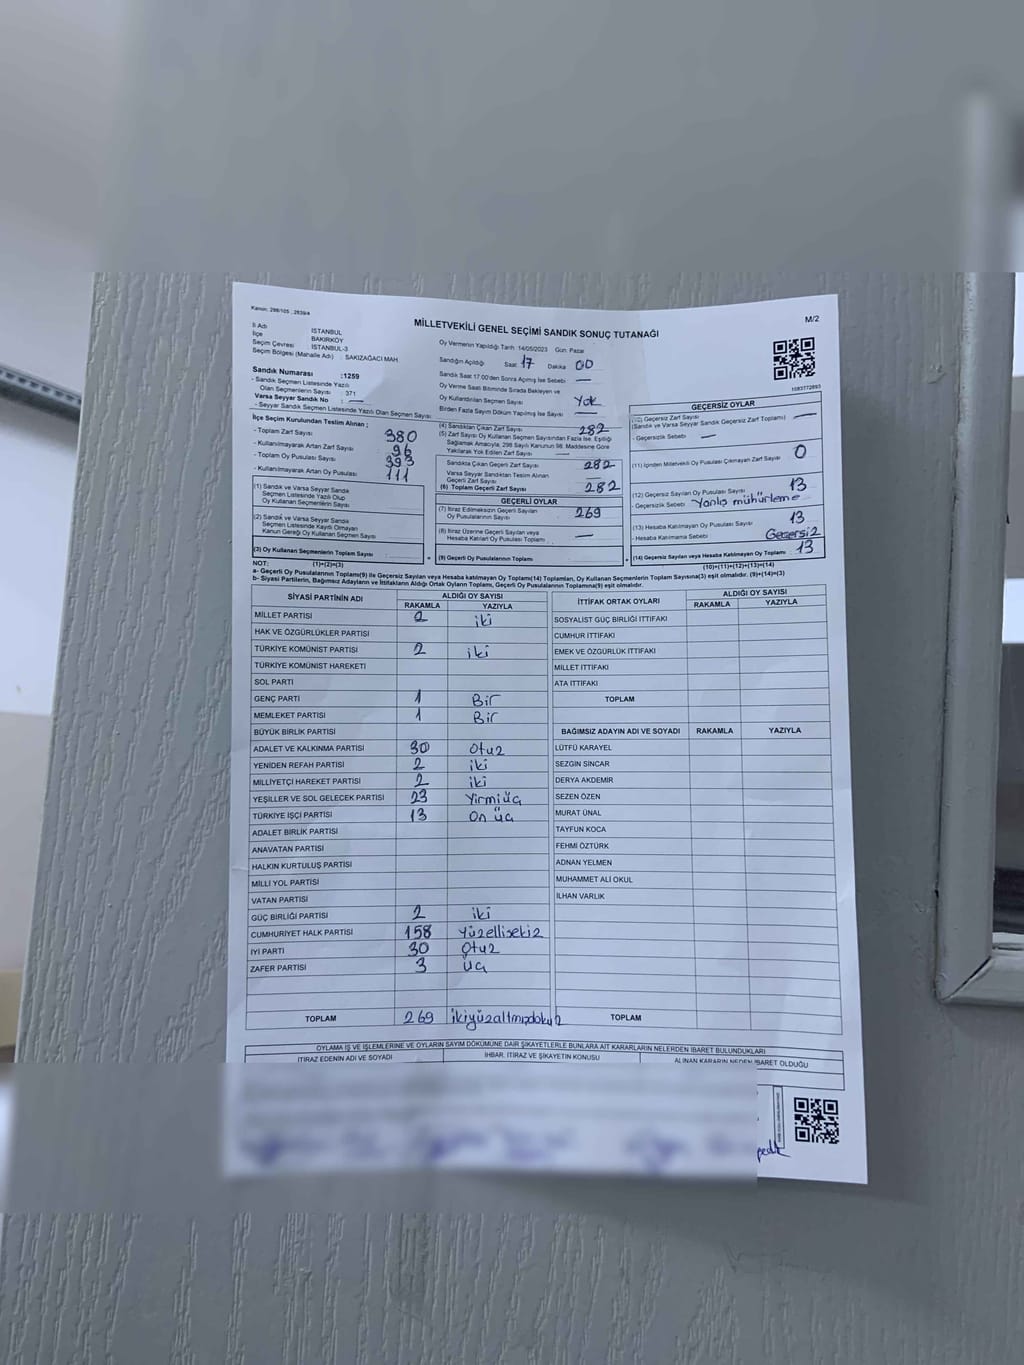 Kanun: 298/105 ; 2839/4
M/2
MİLLETVEKİLİ GENEL SEÇİMİ SANDIK SONUÇ TUTANAĞI
İl Adı : İSTANBUL
İlçe : BAKIRKÖY
Seçim Çevresi : İSTANBUL-3
Seçim Bölgesi (Mahalle Adı) : SAKIZAĞACI MAH.
Sandık Numarası :1259
- Sandık Seçmen Listesinde Yazılı
Olan Seçmenlerin Sayısı : 371
Varsa Seyyar Sandık No : —
- Seyyar Sandık Seçmen Listesinde Yazılı Olan Seçmen Sayısı:
Oy Vermenin Yapıldığı Tarih: 14/05/2023 Gün: Pazar
Sandığın Açıldığı Saat: 17 Dakika 00
Sandık Saat 17:00'den Sonra Açılmış İse Sebebi —
Oy Verme Saati Bitiminde Sırada Bekleyen ve
Oy Kullandırılan Seçmen Sayısı Yok
Birden Fazla Sayım Döküm Yapılmış İse Sayısı —
1083772893
İlçe Seçim Kurulundan Teslim Alınan ;
- Toplam Zarf Sayısı 380
- Kullanılmayarak Artan Zarf Sayısı 96
- Toplam Oy Pusulası Sayısı 393
- Kullanılmayarak Artan Oy Pusulası 111
(1) Sandık ve Varsa Seyyar Sandık
Seçmen Listesinde Yazılı Olup
Oy Kullanan Seçmenlerin Sayısı
(2) Sandık ve Varsa Seyyar Sandık
Seçmen Listesinde Kayıtlı Olmayan
Kanun Gereği Oy Kullanan Seçmen Sayısı
(3) Oy Kullanan Seçmenlerin Toplam Sayısı
(1)+(2)=(3)
(4) Sandıktan Çıkan Zarf Sayısı 282
(5) Zarf Sayısı Oy Kullanan Seçmen Sayısından Fazla İse, Eşitliği
Sağlamak Amacıyla, 298 Sayılı Kanunun 98. Maddesine Göre
Yakılarak Yok Edilen Zarf Sayısı —
Sandıkta Çıkan Geçerli Zarf Sayısı 282
Varsa Seyyar Sandıktan Teslim Alınan
Geçerli Zarf Sayısı —
(6) Toplam Geçerli Zarf Sayısı 282
GEÇERLİ OYLAR
(7) İtiraz Edilmeksizin Geçerli Sayılan
Oy Pusulalarının Sayısı 269
(8) İtiraz Üzerine Geçerli Sayılan veya
Hesaba Katılan Oy Pusulası Toplamı —
(9) Geçerli Oy Pusulalarının Toplamı
GEÇERSİZ OYLAR
(10) Geçersiz Zarf Sayısı
(Sandık ve Varsa Seyyar Sandık Geçersiz Zarf Toplamı) —
- Geçersizlik Sebebi —
(11) İçinden Milletvekili Oy Pusulası Çıkmayan Zarf Sayısı 0
(12) Geçersiz Sayılan Oy Pusulası Sayısı 13
- Geçersizlik Sebebi Yanlış mühürleme
(13) Hesaba Katılmayan Oy Pusulası Sayısı 13
- Hesaba Katılmama Sebebi Geçersiz
(14) Geçersiz Sayılan veya Hesaba Katılmayan Oy Toplamı 13
(10)+(11)+(12)+(13)=(14)
NOT:
a- Geçerli Oy Pusulalarının Toplamı(9) ile Geçersiz Sayılan veya Hesaba katılmayan Oy Toplam(14) Toplamları, Oy Kullanan Seçmenlerin Toplam Sayısına(3) eşit olmalıdır. (9)+(14)=(3)
b- Siyasi Partilerin, Bağımsız Adayların ve İttifakların Aldığı Ortak Oyların Toplamı, Geçerli Oy Pusulalarının Toplamına(9) eşit olmalıdır.
SİYASİ PARTİNİN ADI ALDIĞI OY SAYISI
RAKAMLA YAZIYLA
MİLLET PARTİSİ 2 iki
HAK VE ÖZGÜRLÜKLER PARTİSİ
TÜRKİYE KOMÜNİST PARTİSİ 2 iki
TÜRKİYE KOMÜNİST HAREKETİ
SOL PARTİ
GENÇ PARTİ 1 Bir
MEMLEKET PARTİSİ 1 Bir
BÜYÜK BİRLİK PARTİSİ
ADALET VE KALKINMA PARTİSİ 30 otuz
YENİDEN REFAH PARTİSİ 2 iki
MİLLİYETÇİ HAREKET PARTİSİ 2 iki
YEŞİLLER VE SOL GELECEK PARTİSİ 23 Yirmiüç
TÜRKİYE İŞÇİ PARTİSİ 13 On üç
ADALET BİRLİK PARTİSİ
ANAVATAN PARTİSİ
HALKIN KURTULUŞ PARTİSİ
MİLLİ YOL PARTİSİ
VATAN PARTİSİ
GÜÇ BİRLİĞİ PARTİSİ 2 iki
CUMHURİYET HALK PARTİSİ 158 Yüzellisekiz
İYİ PARTİ 30 otuz
ZAFER PARTİSİ 3 üç
TOPLAM 269 ikiyüzaltmışdokuz
İTTİFAK ORTAK OYLARI ALDIĞI OY SAYISI
RAKAMLA YAZIYLA
SOSYALİST GÜÇ BİRLİĞİ İTTİFAKI
CUMHUR İTTİFAKI
EMEK VE ÖZGÜRLÜK İTTİFAKI
MİLLET İTTİFAKI
ATA İTTİFAKI
TOPLAM
BAĞIMSIZ ADAYIN ADI VE SOYADI RAKAMLA YAZIYLA
LÜTFÜ KARAYEL
SEZGİN SİNCAR
DERYA AKDEMİR
SEZEN ÖZEN
MURAT ÜNAL
TAYFUN KOCA
FEHMİ ÖZTÜRK
ADNAN YELMEN
MUHAMMET ALİ OKUL
İLHAN VARLIK
TOPLAM
OYLAMA İŞ VE İŞLEMLERİNE VE OYLARIN SAYIM DÖKÜMÜNE DAİR ŞİKAYETLERLE BUNLARA AİT KARARLARIN NELERDEN İBARET BULUNDUKLARI
İTİRAZ EDENİN ADI VE SOYADI İHBAR, İTİRAZ VE ŞİKAYETİN KONUSU ALINAN KARARIN NEDEN İBARET OLDUĞU